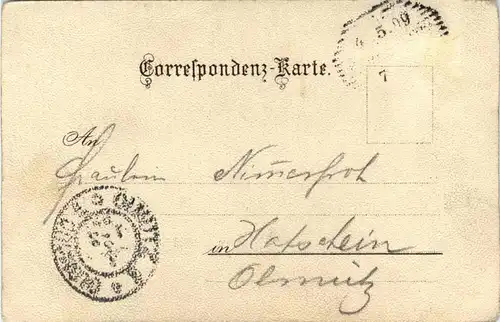 4. 5. 00
Correspondenz-Karte.
7
An
Fräulein Nimmerfroh
in Hatschein
Olmütz